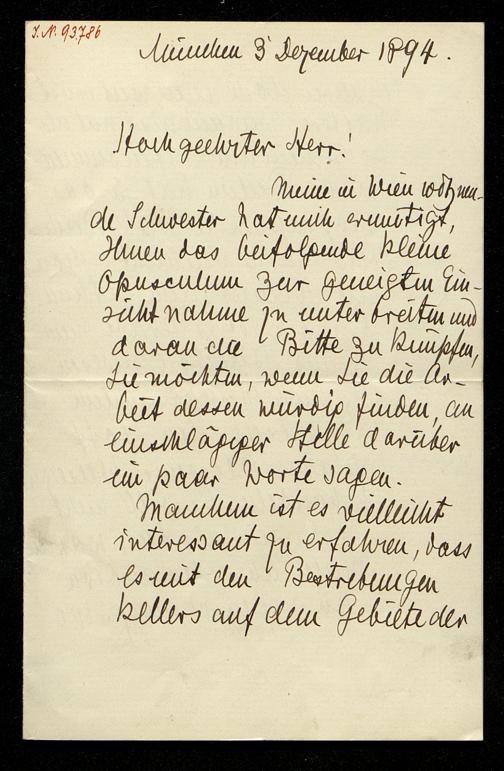 J.N. 93.786
München 3 Dezember 1894.
Hochgeehrter Herr!
Meine in Wien wohnen-
de Schwester hat mich ermutigt,
Ihnen das beifolgende kleine
Opusculum zur geneigten Ein-
sichtnahme zu unterbreiten und
daran die Bitte zu knüpfen,
Sie möchten, wenn Sie die Ar-
beit dessen würdig finden, an
einschlägiger Stelle darüber
ein paar Worte sagen.
Manchem ist es vielleicht
interessant zu erfahren, dass
es mit den Bestrebungen
Kellers auf dem Gebiete der